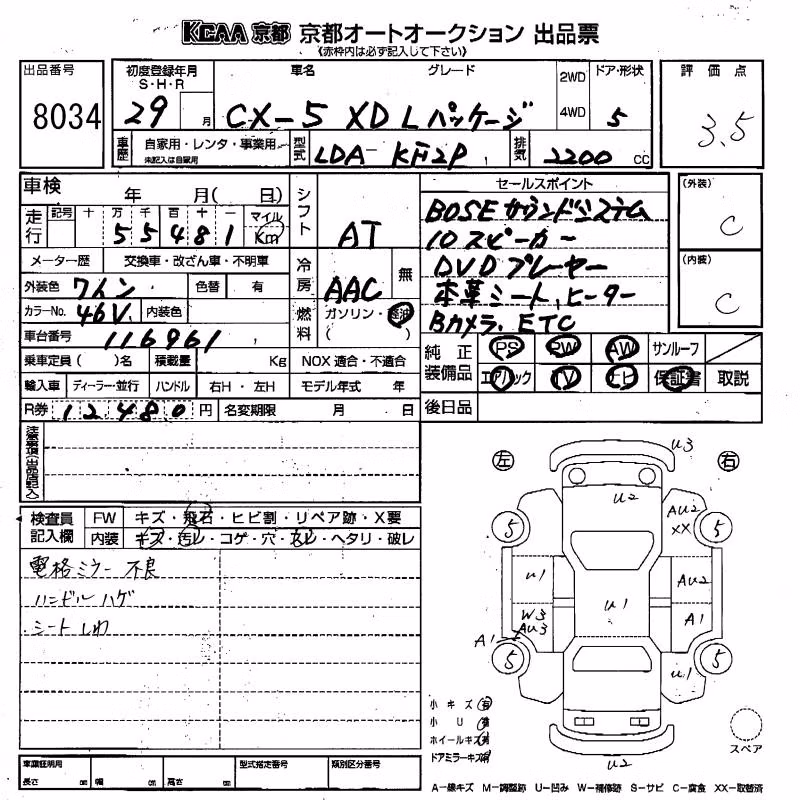 KCAA 京都 京都オートオークション 出品票
《赤枠内は必ず記入して下さい》
出品番号 8034
初度登録年月 S・H・R 29 月
車名 グレード CX-5 XD Lパッケージ
2WD 4WD
ドア・形状 5
評価点 3.5
車歴 自家用・レンタ・事業用 未記入は自家用
型式 LDA- KF2P
排気 2200 CC
車検 年 月( 日)
走行 記号 十 万 千 百 十 一 マイル Km
55481
メーター歴 交換車・改ざん車・不明車
外装色 ワイン 色替 有
カラーNo. 46V 内装色
車台番号 116961
乗車定員 ( )名 積載量 Kg NOX 適合・不適合
輸入車 ディーラー・並行 ハンドル 右H・左H モデル年式 年
R券 12480 円 名変期限 月 日
シフト AT
冷房 AAC 無
燃料 ガソリン・軽油 ( )
セールスポイント
BOSEサウンドシステム
10スピーカー
DVDプレーヤー
本革シート、ヒーター
Bカメラ、ETC
(外装) C
(内装) C
純正装備品 PS PW AW サンルーフ
エアバック TV ナビ 保証書 取説
後日品
注意事項(出品店記入)
検査員記入欄 FW キズ・飛石・ヒビ割・リペア跡・X要
内装 キズ・汚レ・コゲ・穴・スレ・ヘタリ・破レ
電格ミラー不良
ハンドルハゲ
シートしわ
左 右
U3
U2
AU2
XX
5 5
U1 AU2
U1
W3
AU3 A1
A1
5 5
U1
U2
小キズ 有
小U 有
ホイールキズ 有
ドアミラーキズ 有
スペア
車庫証明用 長さ cm 幅 cm 高さ cm
型式指定番号 類別区分番号
A―線キズ M―調整跡 U―凹み W―補修跡 S―サビ C―腐食 XX―取替済